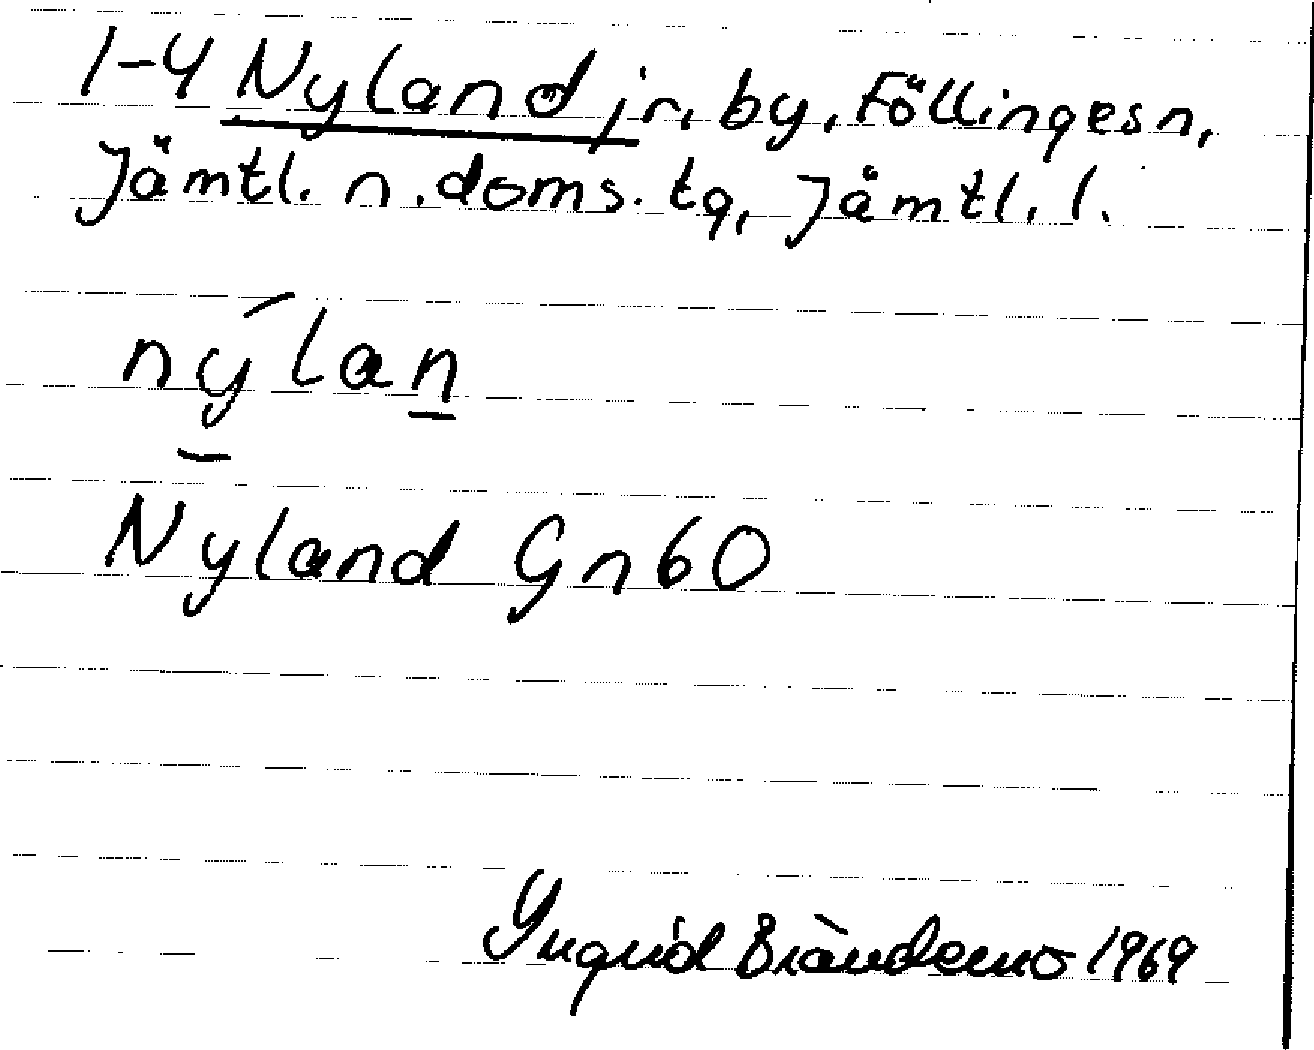 1-4 Nyland jr, by, Föllinge sn,
Jämtl. n. doms. tg, Jämtl. l.
nýlan
Nyland Gn 60
Yngrid Brändemo 1969